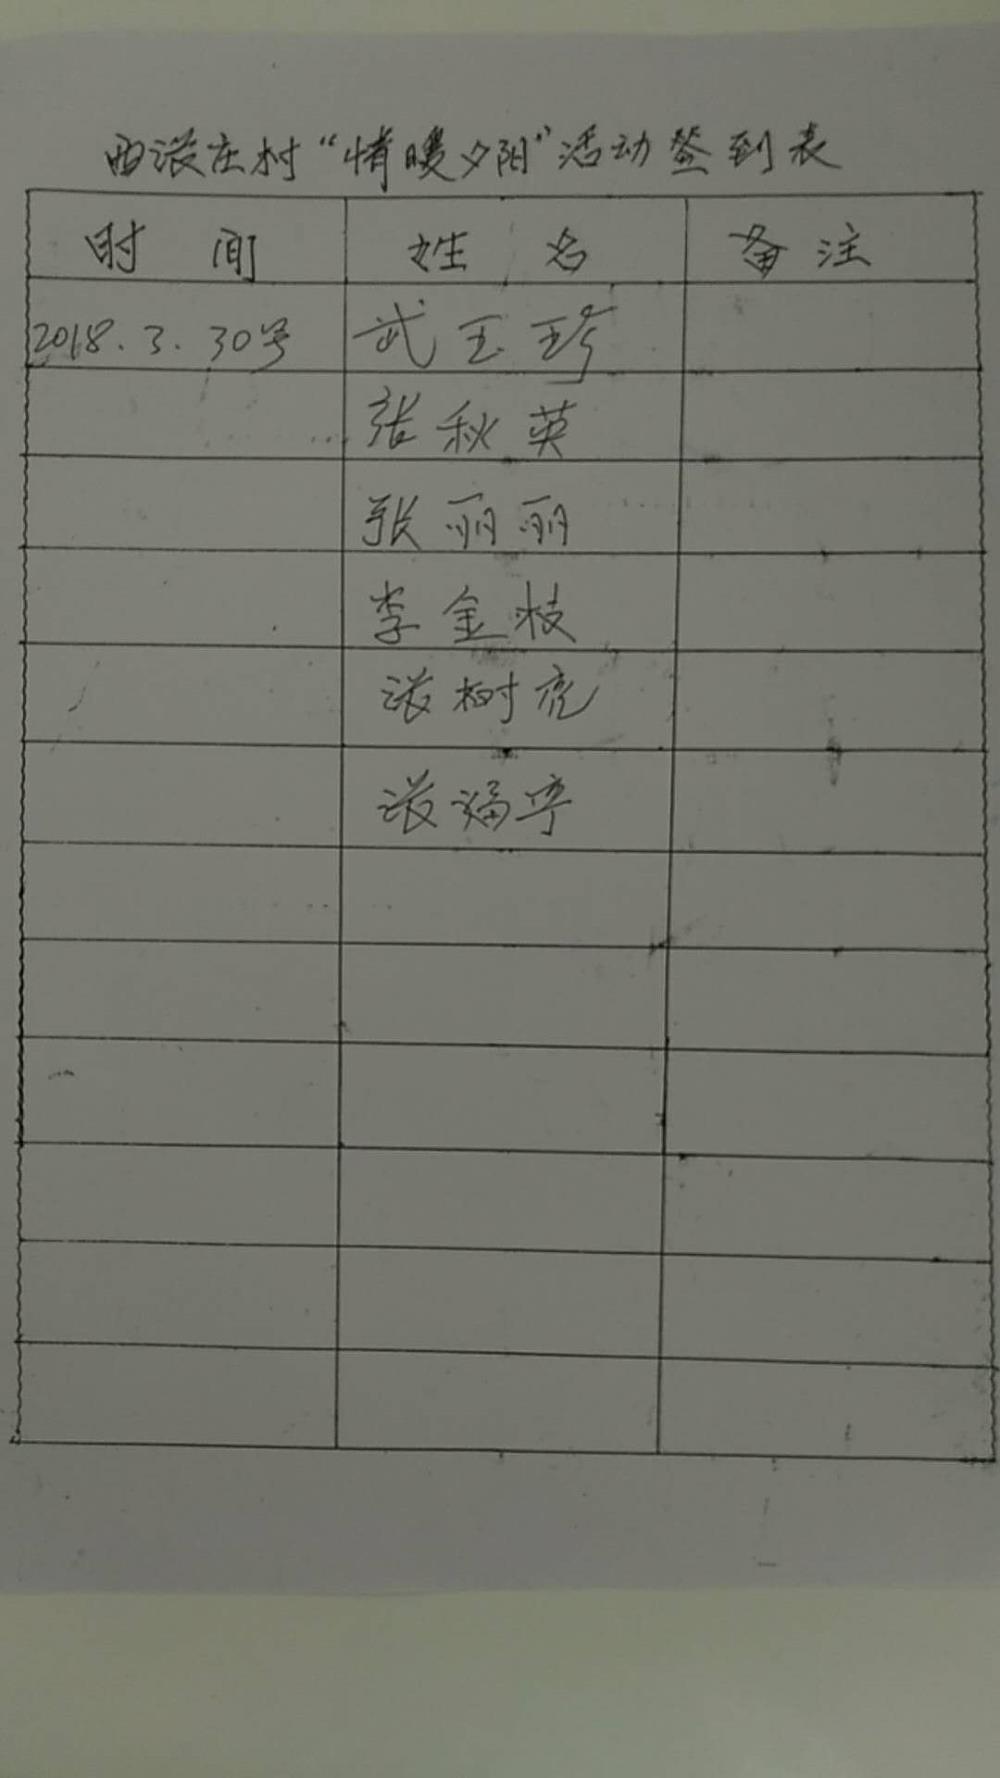 西滚庄村“情暖夕阳”活动签到表
时间 姓名 备注
2018.3.30号 武玉珍
张秋英
张丽丽
李金枝
滚树亮
滚福亭